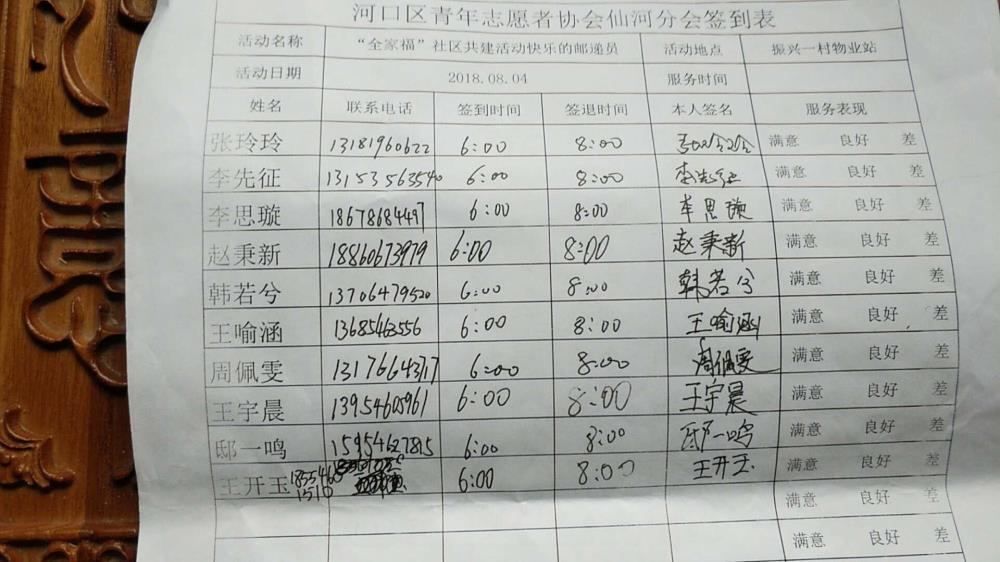 河口区青年志愿者协会仙河分会签到表
活动名称 “全家福”社区共建活动快乐的邮递员 活动地点 振兴一村物业站
活动日期 2018.08.04 服务时间
姓名 联系电话 签到时间 签退时间 本人签名 服务表现
张玲玲 13181960622 6:00 8:00 张玲玲 满意 良好 差
李先征 13153563540 6:00 8:00 李先征 满意 良好 差
李思璇 18678684497 6:00 8:00 李思璇 满意 良好 差
赵秉新 18860673979 6:00 8:00 赵秉新 满意 良好 差
韩若兮 13706479520 6:00 8:00 韩若兮 满意 良好 差
王喻涵 13685463556 6:00 8:00 王喻涵 满意 良好 差
周佩雯 13176644317 6:00 8:00 周佩雯 满意 良好 差
王宇晨 13954605961 6:00 8:00 王宇晨 满意 良好 差
邸一鸣 15954627815 6:00 8:00 邸一鸣 满意 良好 差
王开玉 6:00 8:00 王开玉 满意 良好 差
满意 良好 差
满意 良好 差